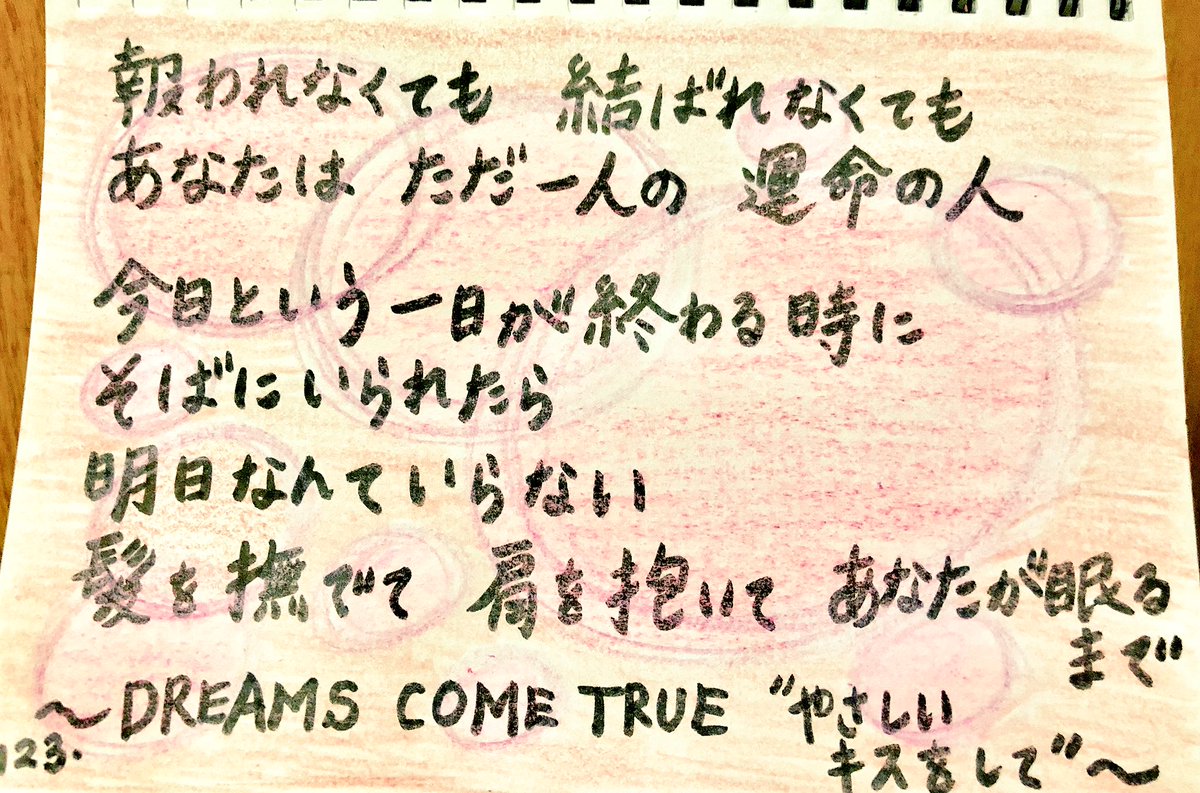 報われなくても 結ばれなくても
あなたは ただ一人の 運命の人
今日という一日が終わる時に
そばにいられたら
明日なんていらない
髪を撫でて 肩を抱いて あなたが眠る
まで
〜DREAMS COME TRUE "やさしい
キスをして"〜
123.